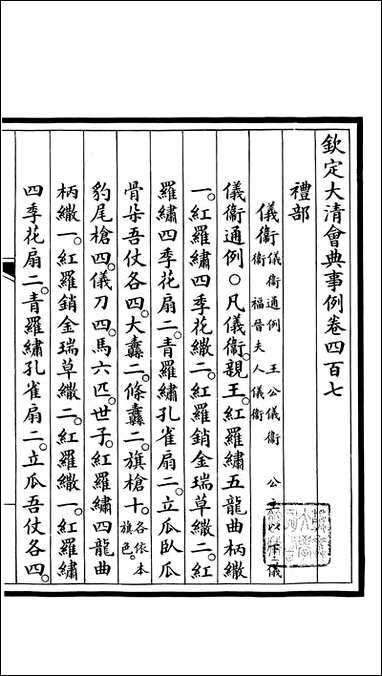 欽定大清會典事例卷四百七
禮部
儀衞 儀衞通例 王公儀衞 公主以下儀衞 福晉夫人儀衞
儀衞通例○凡儀衞。親王。紅羅繡五龍曲柄繖
一。紅羅繡四季花繖二。紅羅銷金瑞草繖二。紅
羅繡四季花扇二。青羅繡孔雀扇二。立瓜臥瓜
骨朵吾仗各四。大纛二。條纛二。旗槍十。各依本旗色。
豹尾槍四。儀刀四。馬六匹。世子。紅羅繡四龍曲
柄繖一。紅羅銷金瑞草繖二。紅羅繖一。紅羅繡
四季花扇二。青羅繡孔雀扇二。立瓜吾仗各四。